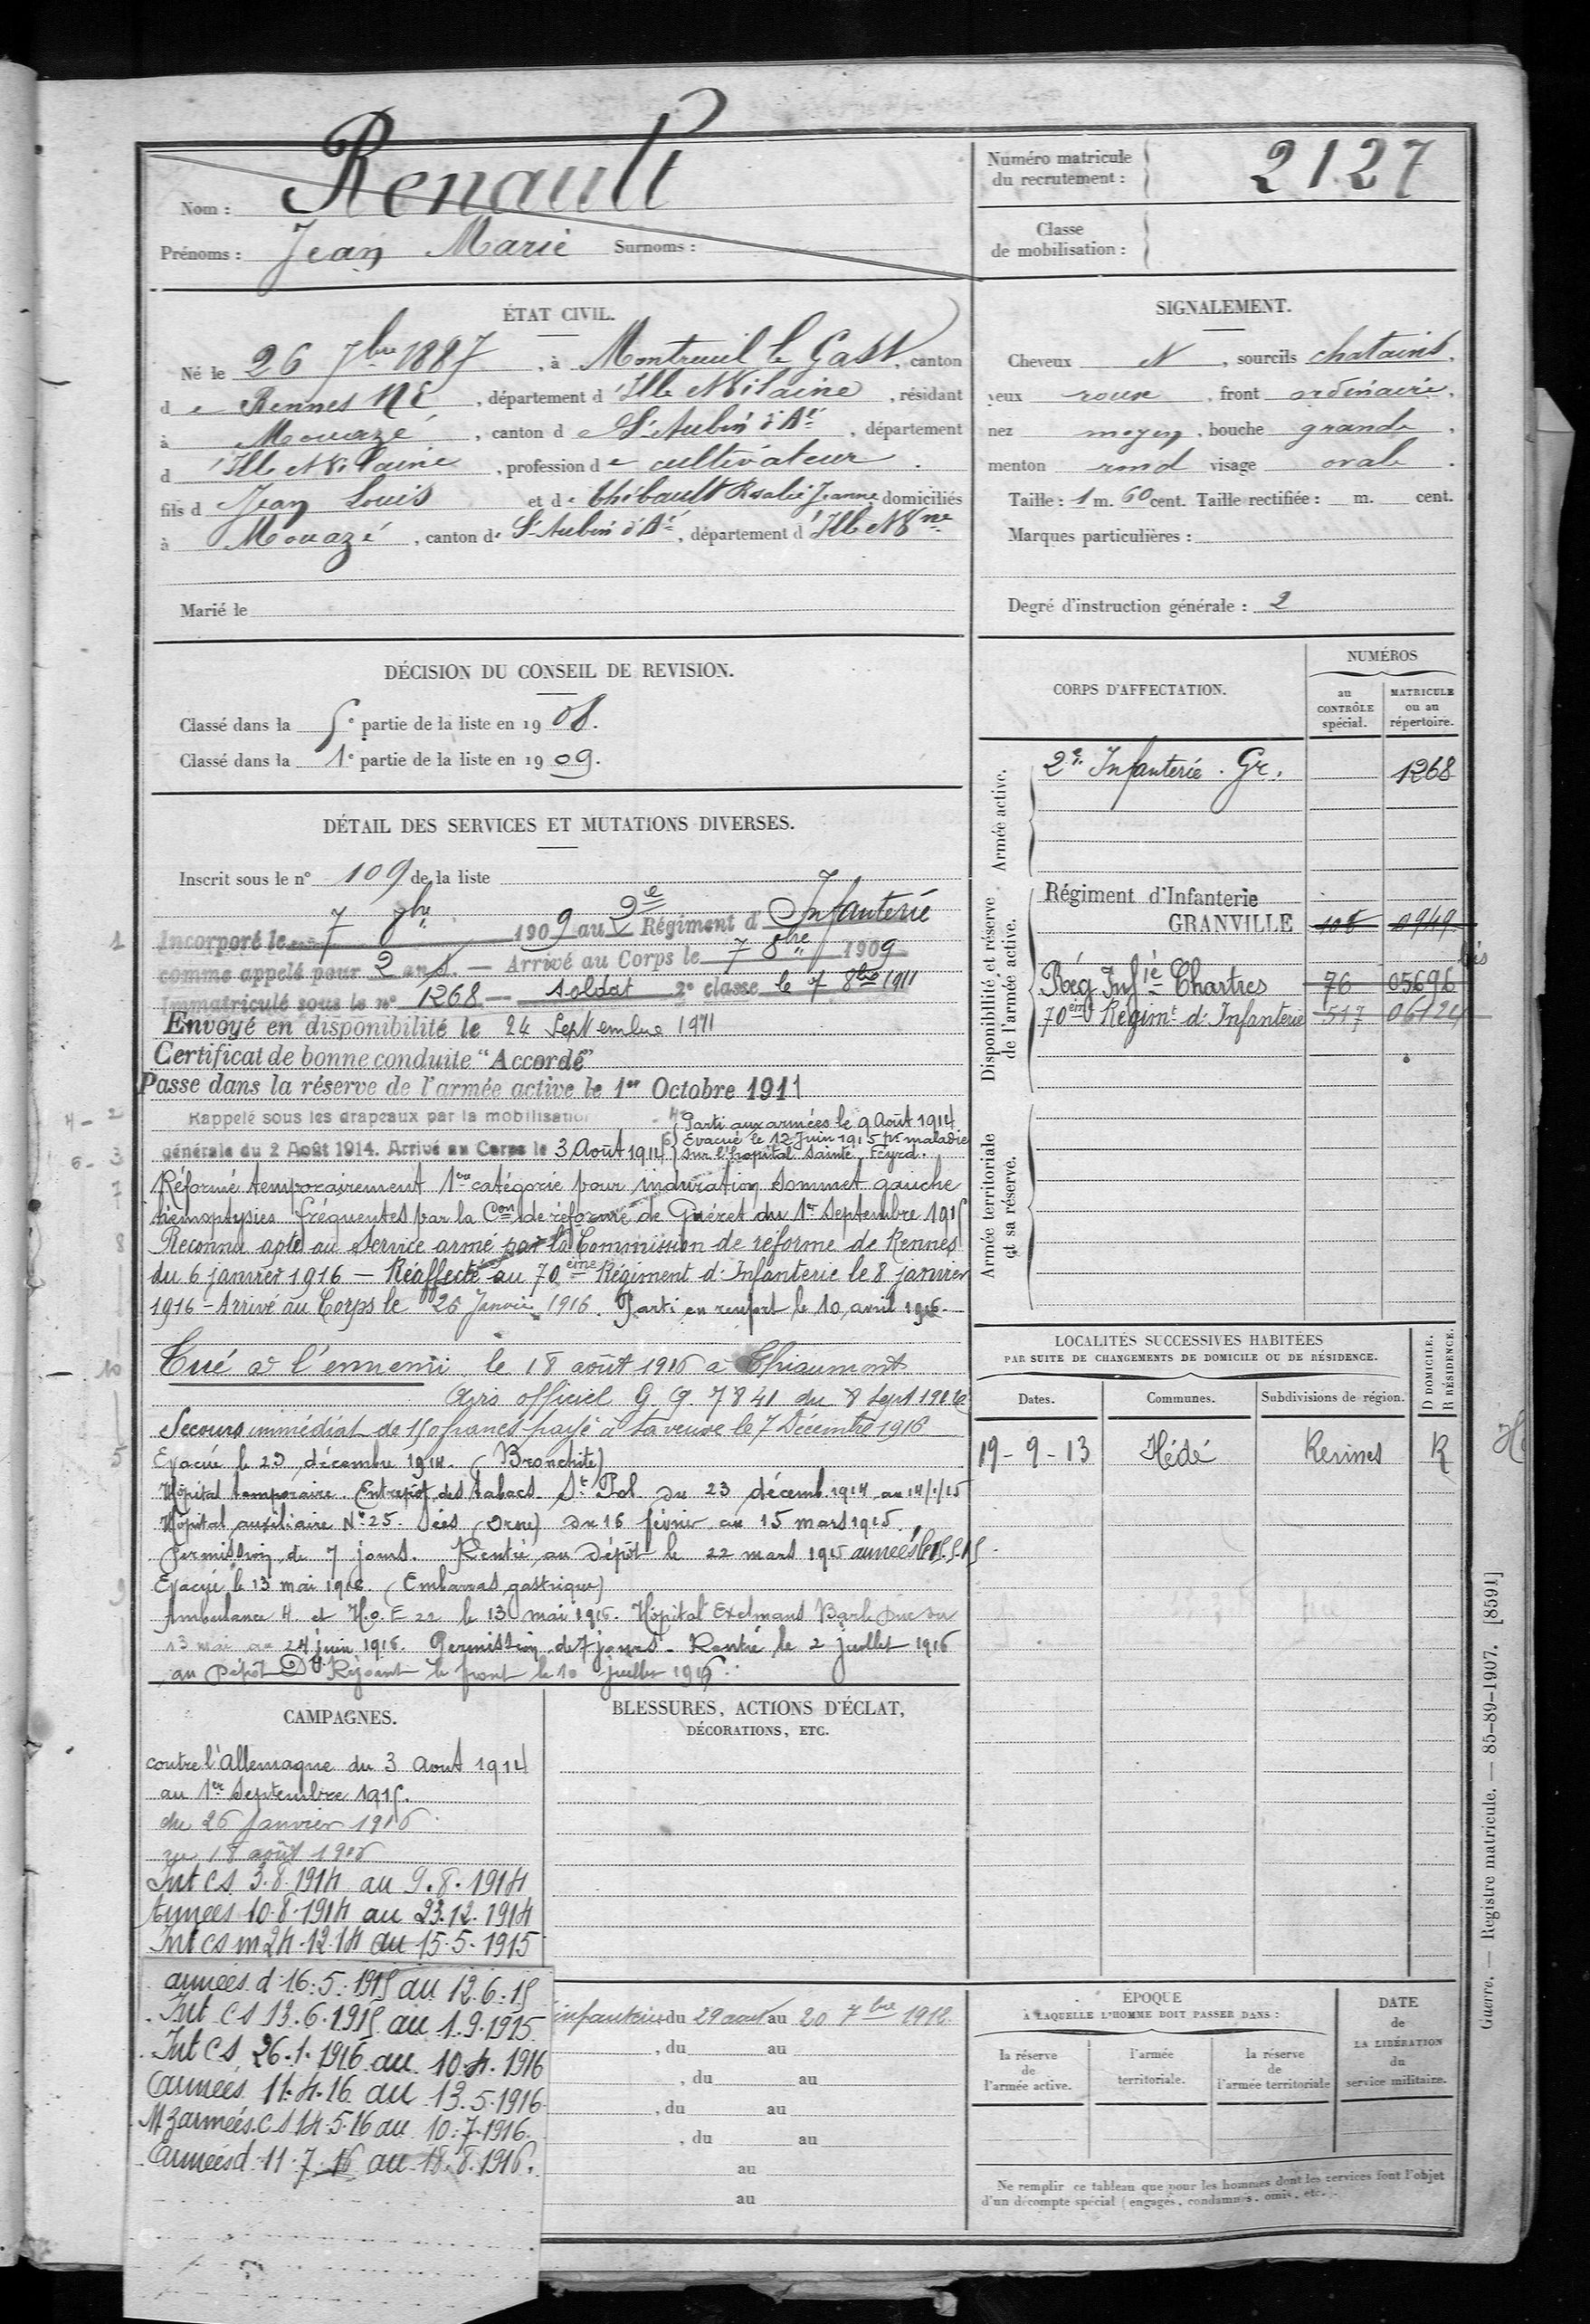 Nom : Renault
Prénoms : Jean Marie Surnoms :
Numéro matricule
du recrutement :
2127
Classe
de mobilisation :
ÉTAT CIVIL.
Né le 26 7bre 1887, à Montreuil le Gast, canton
de Rennes NE, département d'Ille et Vilaine, résidant
à Mouazé, canton de St Aubin d'Aé, département
d'Ille et Vilaine, profession de cultivateur.
fils d Jean Louis et de Thébault Rosalie Jeanne, domiciliés
à Mouazé, canton de St Aubin d'Aé, département d'Ille et Vne
Marié le
SIGNALEMENT.
Cheveux N, sourcils chatains,
yeux roux, front ordinaire,
nez moyen, bouche grande,
menton rond visage ovale.
Taille : 1 m. 60 cent. Taille rectifiée : m. cent.
Marques particulières :
Degré d'instruction générale : 2
DÉCISION DU CONSEIL DE REVISION.
Classé dans la 5e partie de la liste en 1908.
Classé dans la 1e partie de la liste en 1909.
DÉTAIL DES SERVICES ET MUTATIONS DIVERSES.
Inscrit sous le n° 109 de la liste
1 Incorporé le 7 8bre 1909 au 2e Régiment d'Infanterie
comme appelé pour 2 ans. — Arrivé au Corps le 7 8bre 1909
Immatriculé sous le n° 1268 — soldat 2e classe le 7 8bre 1911
Envoyé en disponibilité le 24 Septembre 1911
Certificat de bonne conduite "Accordé"
Passe dans la réserve de l'armée active le 1er Octobre 1911
4 - 2 Rappelé sous les drapeaux par la mobilisation
4° Parti aux armées le 9 Août 1914
6 - 3 générale du 2 Août 1914. Arrivé au Corps le 3 Août 1914
6) Evacué le 12 Juin 1915 pr maladie
sur l'hopital Sainte Feyrd.
7 Réformé temporairement 1re catégorie pour induration sommet gauche
hémoptysies fréquentes par la Con de réforme de Guéret du 1er Septembre 1915
8 Reconnu apte au service armé par la Commission de réforme de Rennes
du 6 janvier 1916 — Réaffecté au 70ème Régiment d'Infanterie le 8 janvier
1916 - Arrivé au Corps le 26 Janvier 1916. Parti en renfort le 10 avril 1916.
10 Tué à l'ennemi le 18 août 1916 à Thiaumont
Avis officiel G Q 7841 du 8 Sept 1916
Secours immédiat de 150 francs payé à sa veuve le 7 Décembre 1916
5 Evacué le 23 décembre 1914. (Bronchite)
Hôpital temporaire. Entrepôt des tabacs. St Pol du 23 décemb. 1914 au 14/1/15
Hôpital auxiliaire N° 25. Sées (Orne) du 16 février au 15 mars 1915.
Permission de 7 jours. Rentré au Dépôt le 22 mars 1915 armées le 15.5.15
9 Evacué le 13 mai 1916. (Embarras gastrique)
Ambulance 4 et H.o.E 22 le 13 mai 1916. Hôpital Exelmans Bar le Duc du
13 mai au 24 juin 1916. Permission de 7 jours. Rentré le 2 juillet 1916
au Dépôt Dre Rejoint le front le 10 juillet 1916.
CORPS D'AFFECTATION.
NUMÉROS
au
CONTRÔLE
spécial.
MATRICULE
ou au
répertoire.
Armée active.
2e Infanterie. Gr. 1268
Disponibilité et réserve
de l'armée active.
Régiment d'Infanterie
GRANVILLE 108 0949
bis
Rég. Infie Chartres 76 05696
70ème Régimt d'Infanterie 517 06124
Armée territoriale
et sa réserve.
LOCALITÉS SUCCESSIVES HABITÉES
PAR SUITE DE CHANGEMENTS DE DOMICILE OU DE RÉSIDENCE.
D DOMICILE.
R RÉSIDENCE.
Dates. Communes. Subdivisions de région.
19-9-13 Hédé Rennes R
CAMPAGNES.
contre l'Allemagne du 3 Aout 1914
au 1er Septembre 1915.
du 26 Janvier 1916
au 18 août 1916
Int CS 3.8.1914 au 9.8.1914
Armées 10.8.1914 au 23.12.1914
Int CS m 24.12.14 au 15.5.1915
armées d 16.5.1915 au 12.6.15
Int CS 13.6.1915 au 1.9.1915
Int CS 26.1.1916 au 10.4.1916
armées 11.4.16 au 13.5.1916
M Z armées CS 14.5.16 au 10.7.1916
armées d 11.7.16 au 18.8.1916.
BLESSURES, ACTIONS D'ÉCLAT,
DÉCORATIONS, ETC.
infanterie du 29 aout au 20 7bre 1912
, du au
, du au
, du au
, du au
au
au
ÉPOQUE
À LAQUELLE L'HOMME DOIT PASSER DANS :
la réserve
de
l'armée active.
l'armée
territoriale.
la réserve
de
l'armée territoriale
DATE
de
LA LIBÉRATION
du
service militaire.
Ne remplir ce tableau que pour les hommes dont les services font l'objet
d'un décompte spécial (engagés, condamnés, omis, etc.).
Guerre. — Registre matricule. — 85-89-1907. [8591]